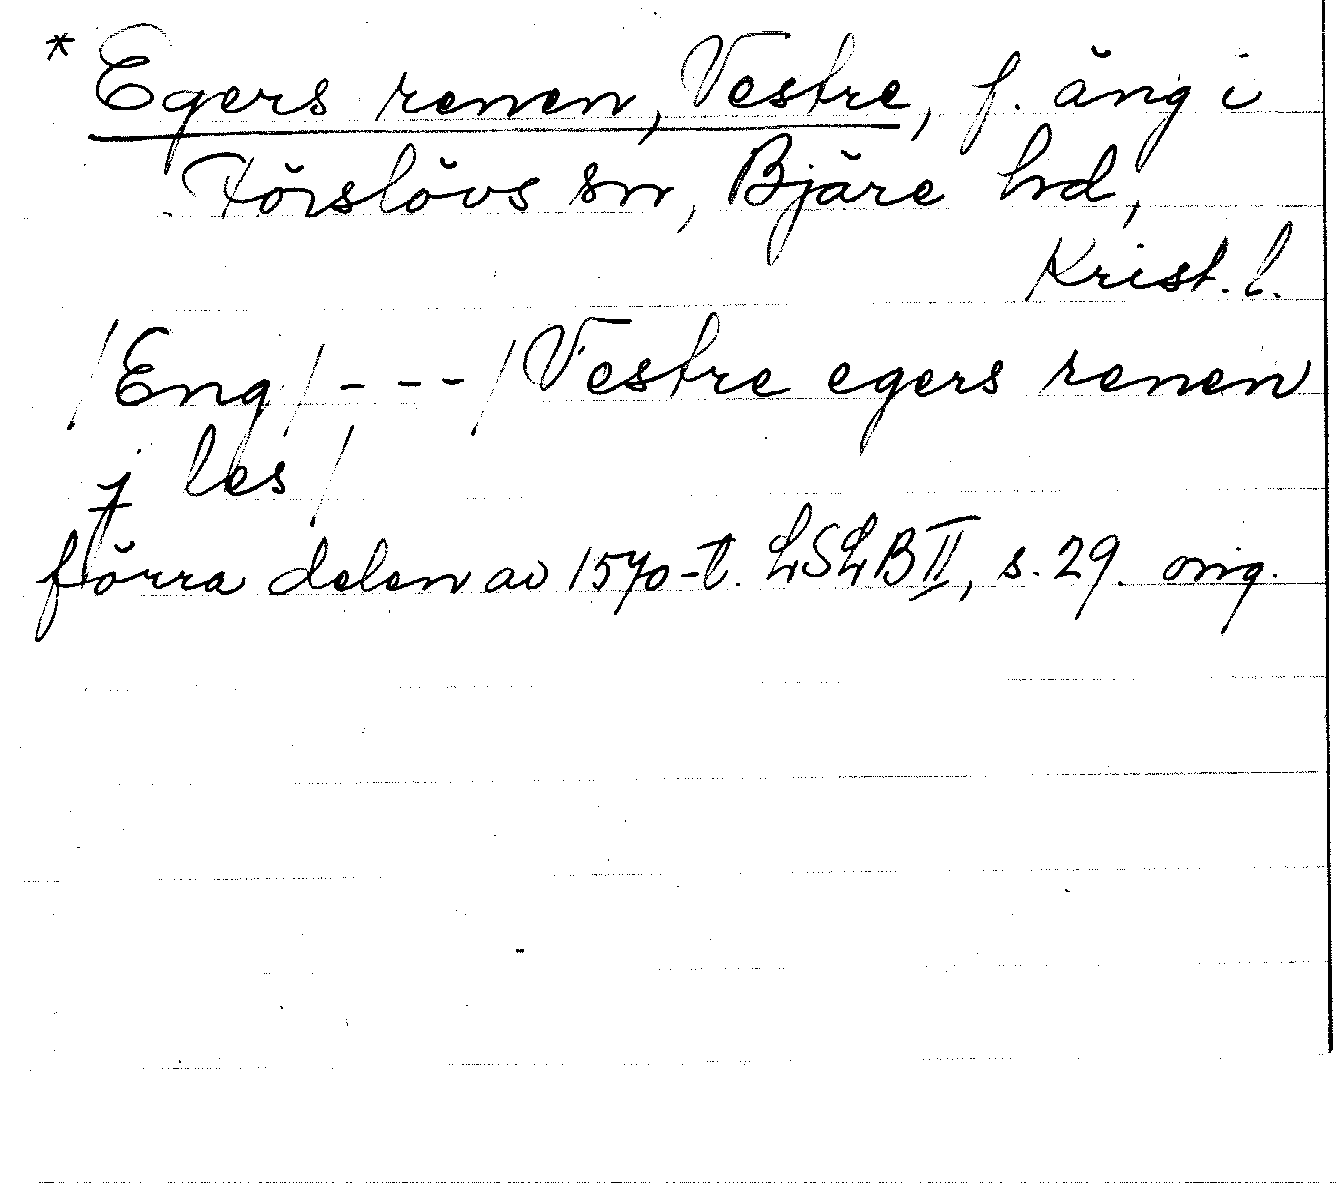 * Egers renen, Vestre, f. äng i
Förslövs sn, Bjäre hd,
Krist. l.
/Eng/ - - - /Vestre egers renen
j les/
förra delen av 1570-t. LSLB II, s. 29. orig.